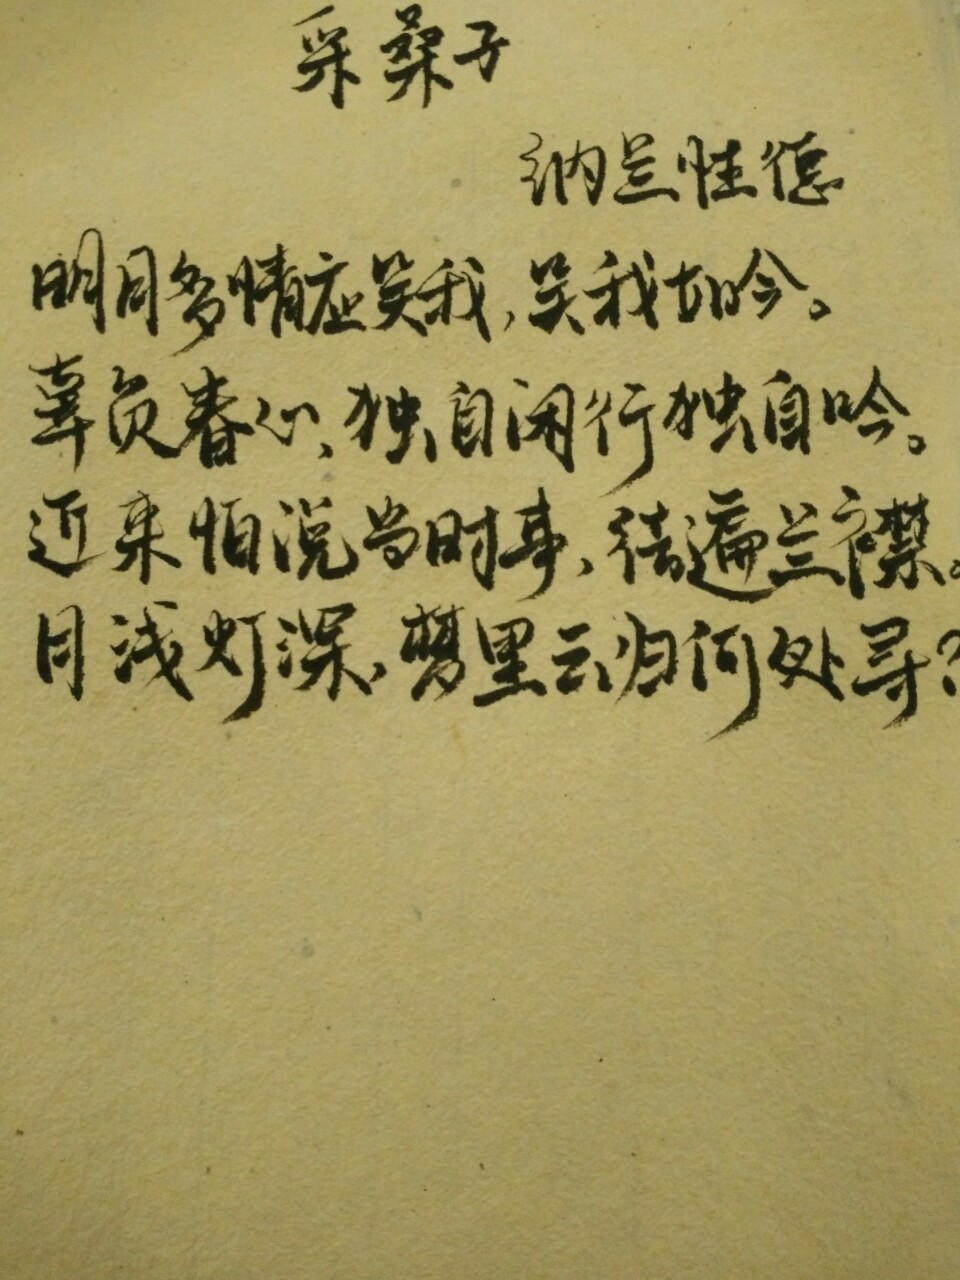 采桑子
纳兰性德
明月多情应笑我,笑我如今。
辜负春心,独自闲行独自吟。
近来怕说当时事,结遍兰襟。
月浅灯深,梦里云归何处寻?